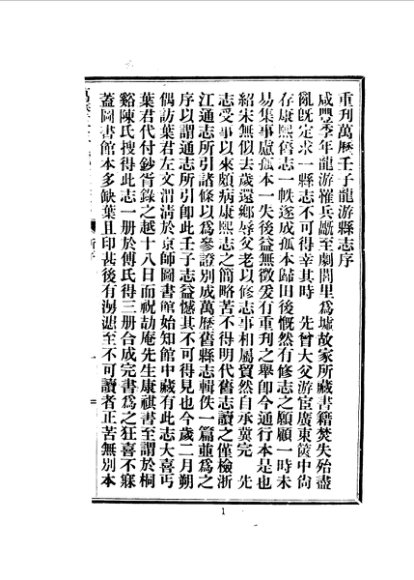 重刊萬曆壬子龍游縣志序
咸豐季年龍游兵至劇閭里爲墟故家所藏書籍焚失殆盡
亂旣定求一縣志不可得幸其時 先曾大父游宦廣東篋中尙
存康熙舊志一帙遂成孤本歸田後慨然有修志之願顧一時未
易集事慮孤本一失後益無徵爰有重刊之舉卽今通行本是也
紹宋無似去歲還鄕辱父老以修志事相屬貿然自承冀完 先
志受事以來頗病康熙志之簡略苦不得明代舊志讀之僅檢浙
江通志所引諸條以爲參證別成萬曆舊縣志輯佚一篇並爲之
序以謂通志所引卽此壬子志益憾其不可得見也今歲二月朔
偶訪葉君左文渭淸於京師圖書館始知館中藏有此志大喜丐
葉君代付鈔胥錄之越十八日而祝劼庵先生康祺書至謂於桐
谿陳氏搜得此志一册於傅氏得三册合成完書爲之狂喜不寐
蓋圖書館本多缺葉且印甚後有泐至不可讀者正苦無別本
1